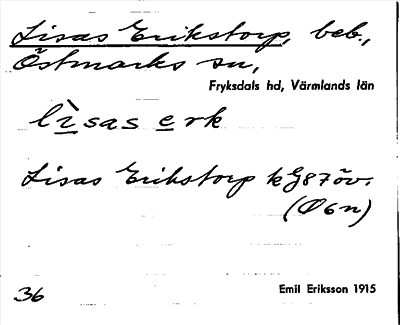 Lisas Erikstorp, beb.,
Östmarks sn,
Fryksdals hd, Värmlands län
lìsas erk
Lisas Erikstorp k G87 öv.
(Ø6n)
36
Emil Eriksson 1915